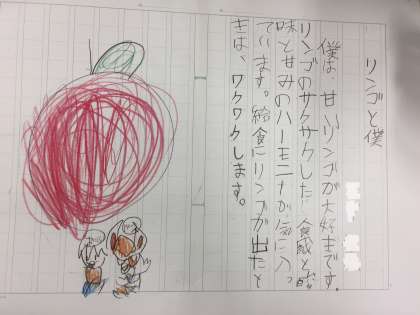 リンゴと僕
僕は、甘いリンゴが大好きです。
リンゴのサクサクした食感と酸
味と甘みのハーモニーが気に入っ
ています。給食にリンゴが出たと
きは、ワクワクします。